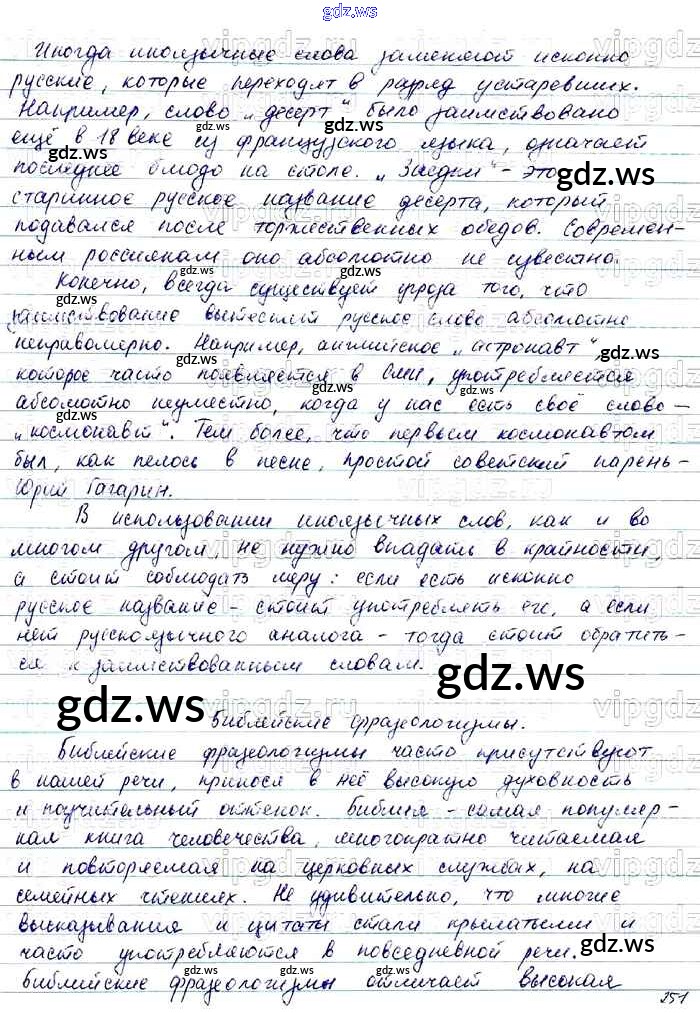 gdz.ws
Иногда иноязычные слова заменяют исконно
русские, которые переходят в разряд устаревших.
Например, слово „десерт" было заимствовано
ещё в 18 веке из французского языка, означает
последнее блюдо на столе. „Заедки" - это
старинное русское название десерта, который
подавался после торжественных обедов. Современ-
ным россиянам оно абсолютно не известно.
Конечно, всегда существует угроза того, что
заимствование вытеснит русское слово абсолютно
неправомерно. Например, английское „астронавт",
которое часто появляется в СМИ, употребляется
абсолютно неуместно, когда у нас есть своё слово -
„космонавт". Тем более, что первым космонавтом
был, как пелось в песне, простой советский парень -
Юрий Гагарин.
В использовании иноязычных слов, как и во
многом другом, не нужно впадать в крайности
а стоит соблюдать меру: если есть исконно
русское название - стоит употреблять его, а если
нет русскоязычного аналога - тогда стоит обратить-
ся к заимствованным словам.
gdz.ws
gdz.ws
Библейские фразеологизмы.
Библейские фразеологизмы часто присутствуют
в нашей речи, принося в неё высокую духовность
и поучительный оттенок. Библия - самая популяр-
ная книга человечества, многократно читаемая
и повторяемая на церковных службах, на
семейных чтениях. Не удивительно, что многие
высказывания и цитаты стали крылатыми и
часто употребляются в повседневной речи.
Библейские фразеологизмы отличает высокая
251